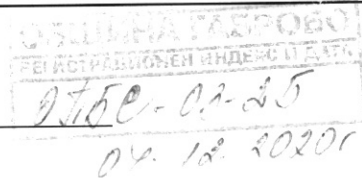 ОБЩИНА ГАБРОВО
РЕГИСТРАЦИОНЕН ИНДЕКС И ДАТА
ОПБС-02-25
04.12.2020г